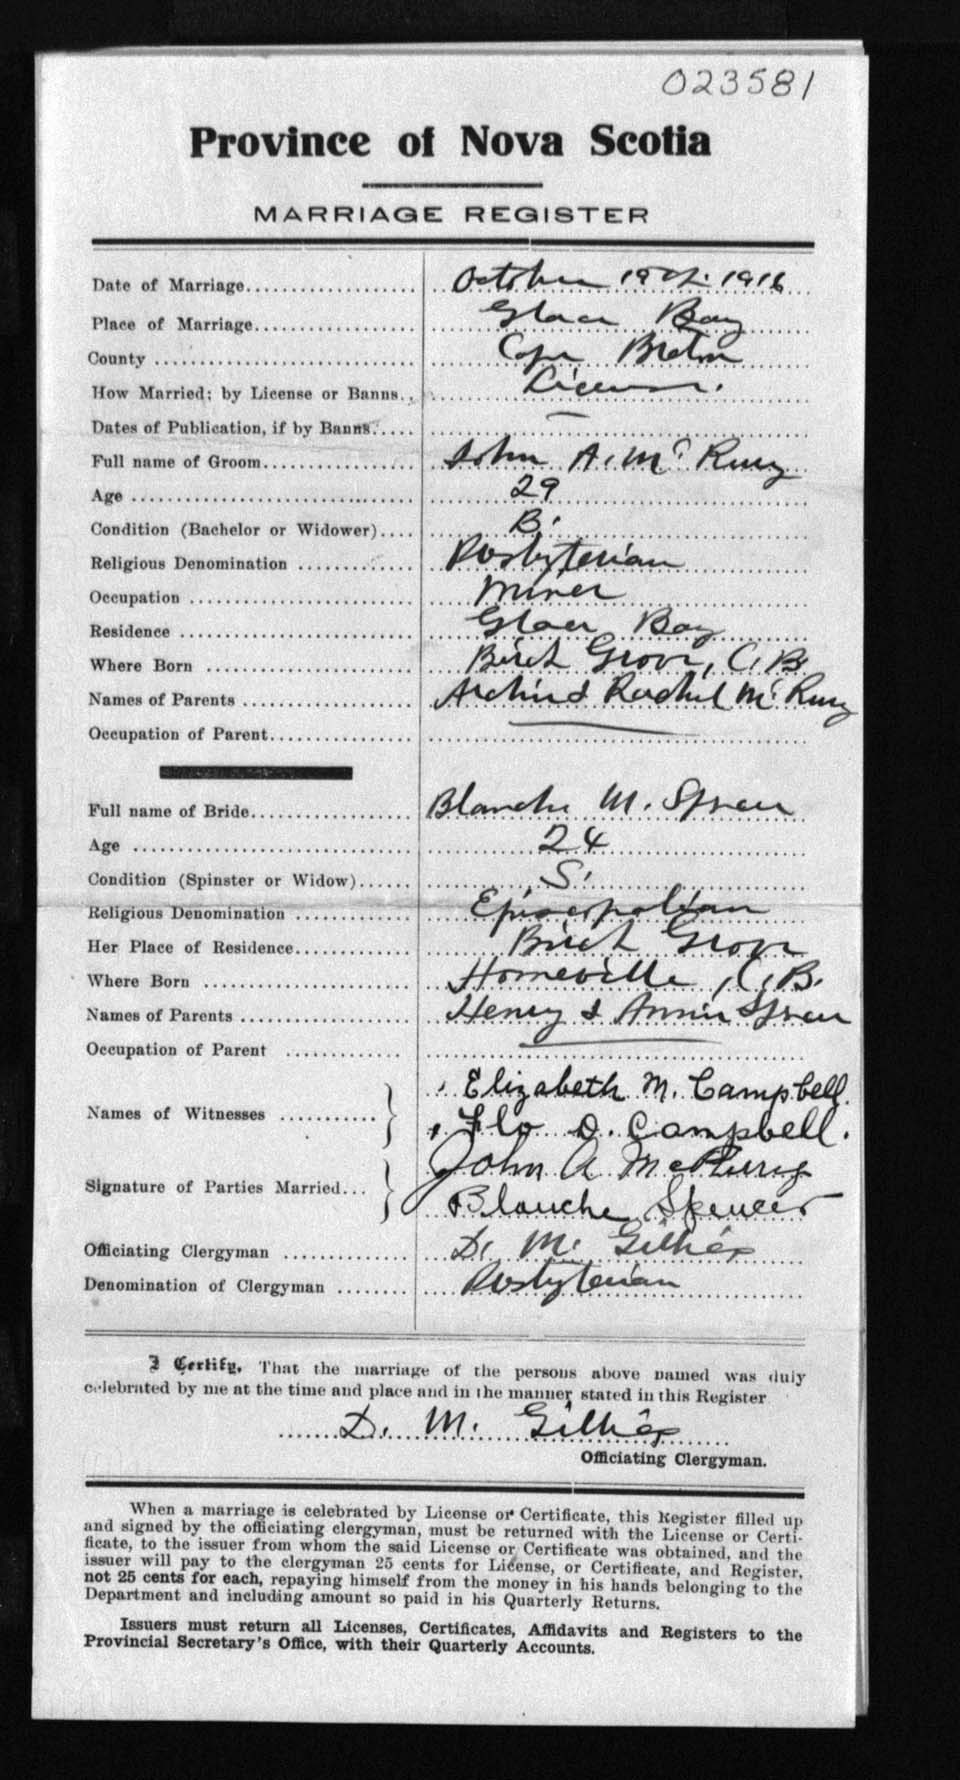 023581
Province of Nova Scotia
MARRIAGE REGISTER
Date of Marriage.................... October 19th. 1916
Place of Marriage................... Glace Bay
County .............................. Cape Breton
How Married; by License or Banns.. License.
Dates of Publication, if by Banns..... —
Full name of Groom.................. John A. Mc Rury
Age .................................. 29
Condition (Bachelor or Widower).... B.
Religious Denomination ............. Presbyterian
Occupation .......................... Miner
Residence ........................... Glace Bay
Where Born ........................ Birch Grove, C. B.
Names of Parents .................... Archie & Rachel Mc Rury
Occupation of Parent.................
Full name of Bride................... Blanche M. Spencer
Age .................................. 24
Condition (Spinster or Widow)...... S.
Religious Denomination ............. Episcopalian
Her Place of Residence.............. Birch Grove
Where Born ........................ Homeville, C. B.
Names of Parents .................... Henry & Annie Spencer
Occupation of Parent ..............
Names of Witnesses ........... Elizabeth M. Campbell.
Flo D. Campbell.
Signature of Parties Married... John A McRury
Blanche Spencer
Officiating Clergyman .............. D. M. Gillies
Denomination of Clergyman ........ Presbyterian
I Certify, That the marriage of the persons above named was duly
celebrated by me at the time and place and in the manner stated in this Register
D. M. Gillies
Officiating Clergyman.
When a marriage is celebrated by License or Certificate, this Register filled up
and signed by the officiating clergyman, must be returned with the License or Certi-
ficate, to the issuer from whom the said License or Certificate was obtained, and the
issuer will pay to the clergyman 25 cents for License, or Certificate, and Register,
not 25 cents for each, repaying himself from the money in his hands belonging to the
Department and including amount so paid in his Quarterly Returns.
Issuers must return all Licenses, Certificates, Affidavits and Registers to the
Provincial Secretary's Office, with their Quarterly Accounts.